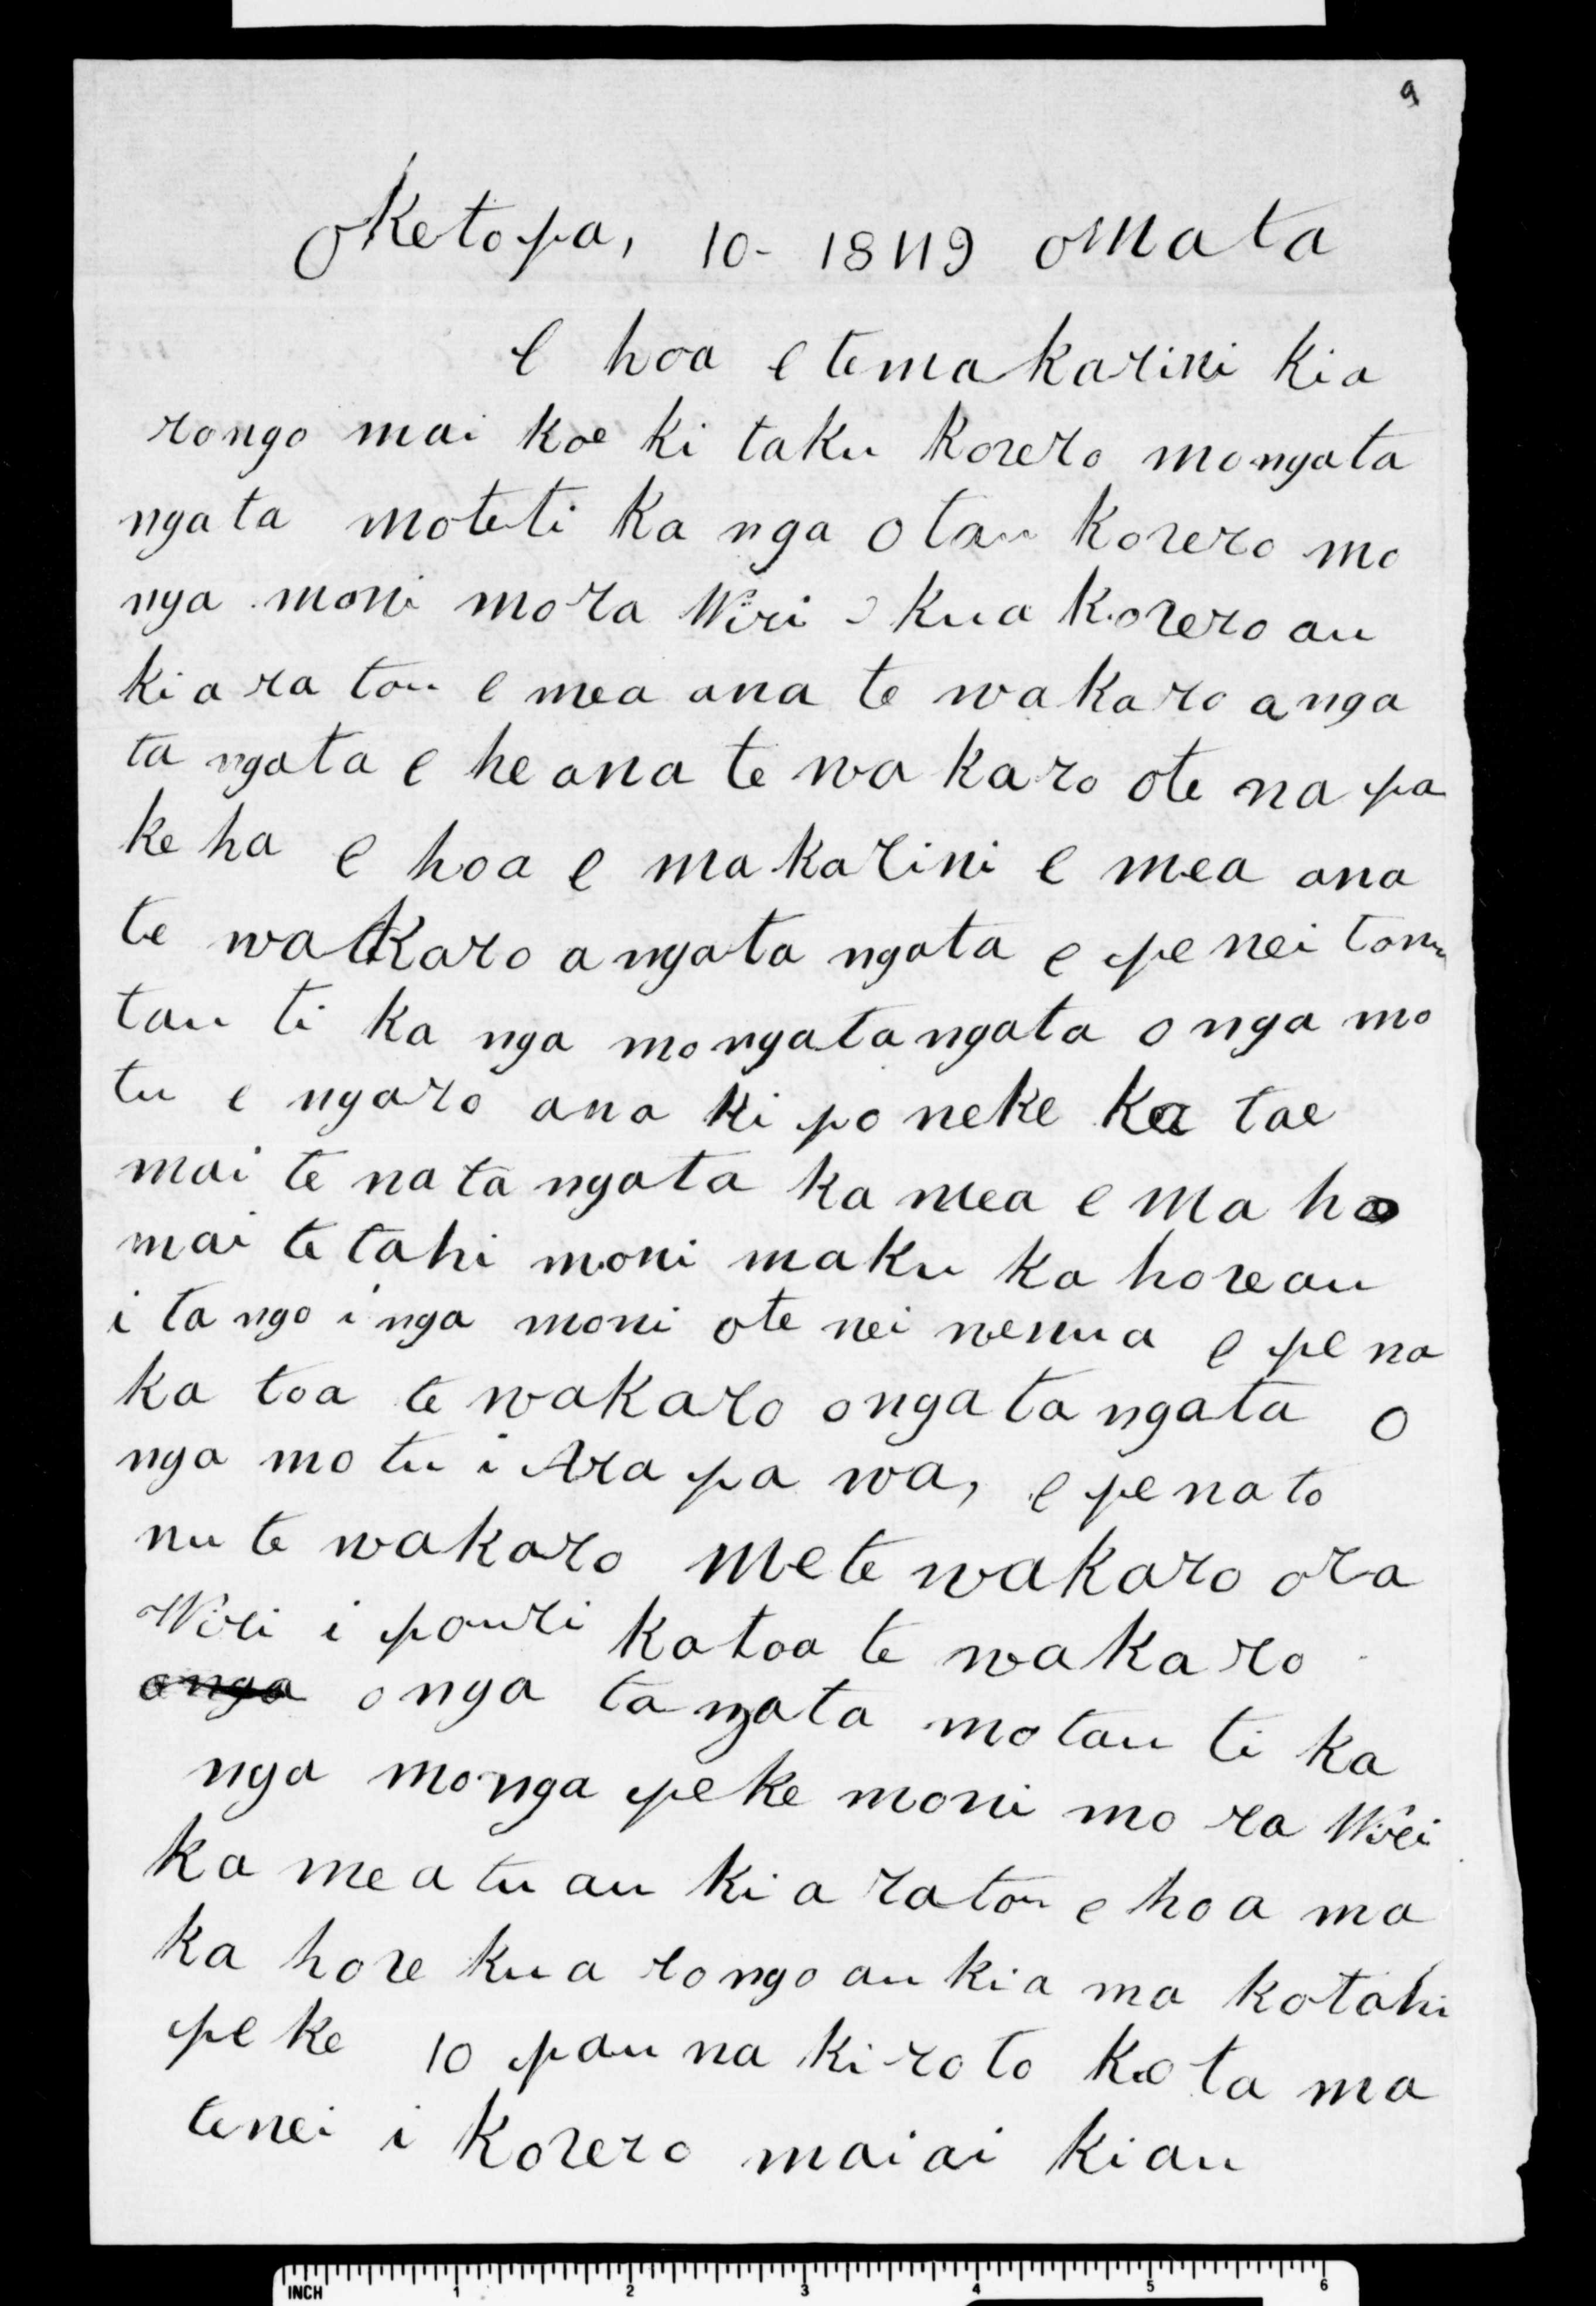 9
Oketopa, 10- 1849 omata
e hoa e temakarini kia
rongo mai koe ki taku korero mongata
ngata moteti ka nga o tau korero mo
nga moni mo ra Wiri kua korero au
ki a ra tou e mea ana te wakaro a nga
ta ngata e he ana te wa karo ote na pa
ke ha e hoa e makarini e mea ana
te wakaro a ngata ngata e pe nei tonu
tau ti ka nga mo ngata ngata o nga mo
tu e ngaro ana ki po neke ka tae
mai te na ta ngata ka mea e ma ho
mai te tahi moni maku ka hore au
i ta ngo i nga moni ote nei wenua e pe na
ka toa te wakaro o nga ta ngata o
nga mo tu i Ara pa wa, e pe na to
nu te wakaro me te wakaro o ra
Wiri i pouri katoa te wakaro
onga o nga ta ngata mo tau ti ka
nga mo nga peke moni mo ra Wiri
ka me a tu au ki a ratou e hoa ma
ka hore kua rongo au kia ma kotahi
pe ke 10 pau na ki ro to ko ta ma
tenei i korero mai ai ki au
INCH 1 2 3 4 5 6